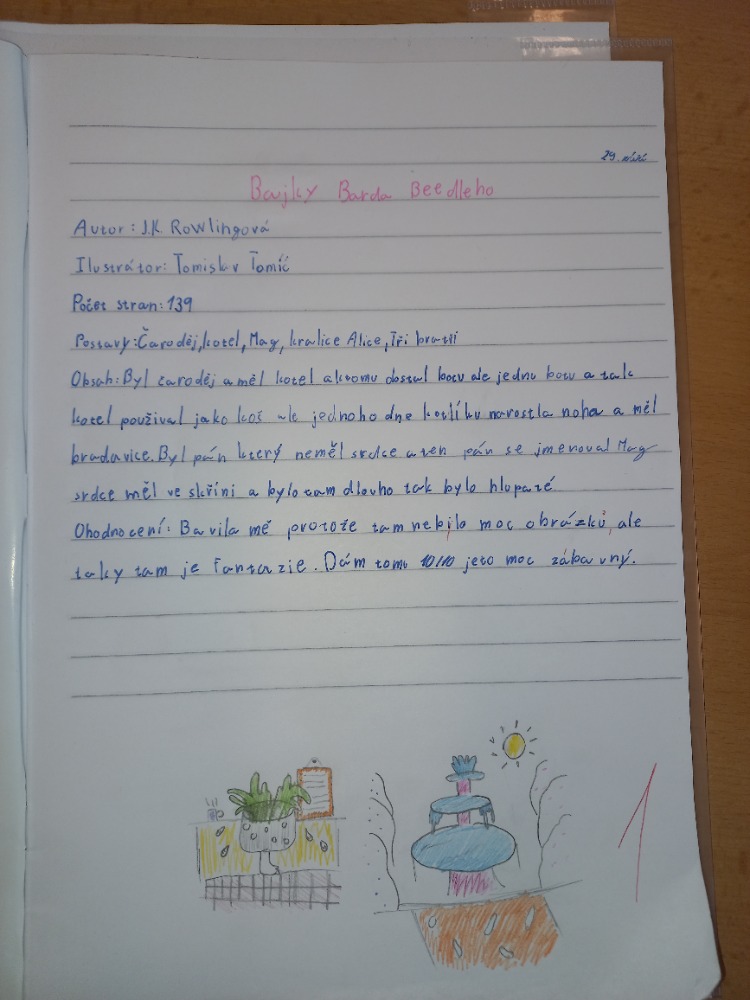 29. září
Bajky Barda Beedleho
Autor: J.K. Rowlingová
Ilustrátor: Tomislav Tomić
Počet stran: 139
Postavy: Čaroděj, kotel, Mag, kralice Alice, Tři bratři
Obsah: Byl čaroděj a měl kotel aktomu dostal botu ale jednu botu a tak
kotel použival jako koš ale jednoho dne kotlíku narostla noha a měl
bradavice. Byl pán který neměl srdce a ten pán se jmenoval Mag
srdce měl ve skříni a bylo tam dlouho tak bylo hlupaté
Ohodnocení: Bavila mě protože tam nebilo moc obrázků, ale
taky tam je fantazie. Dám tomu 10/10 jeto moc zábavný.
1